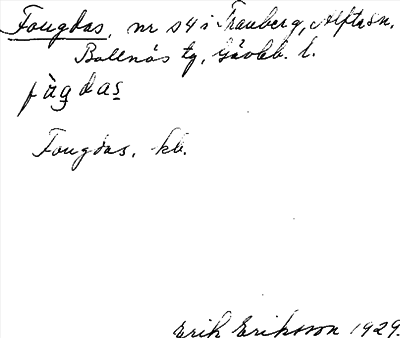 Fougdas, nr 54 i Tranberg, Alfta sn,
Bollnäs tg, Gävleb. l.
fàgdas
Fougdas, kb.
Erik Eriksson 1929.